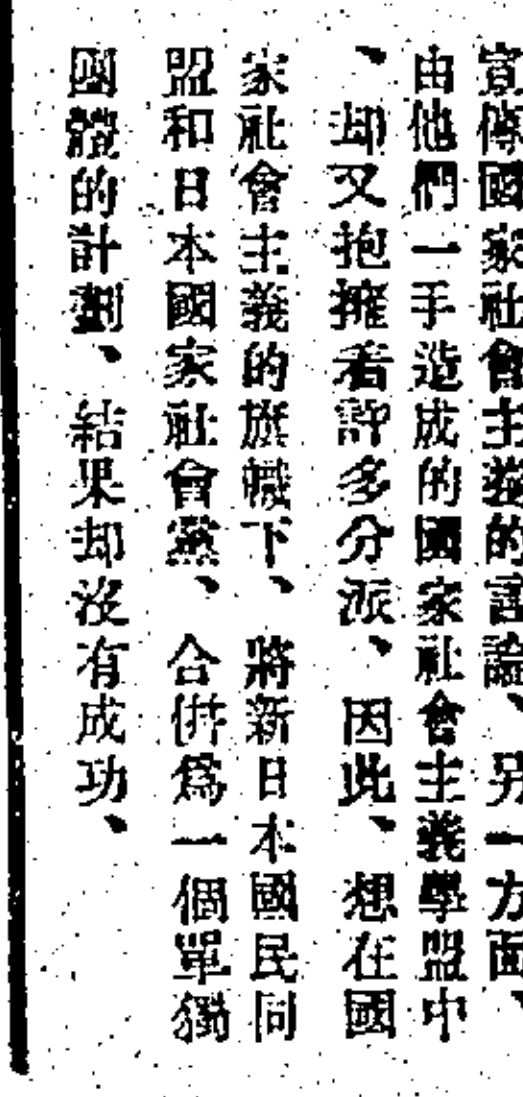 宣傳國家社會主義的言論、另一方面、
由他們一手造成的國家社會主義學盟中
、却又抱擁着許多分派、因此、想在國
家社會主義的旗幟下、將新日本國民同
盟和日本國家社會黨、合併爲一個單獨
團體的計劃、結果却沒有成功、